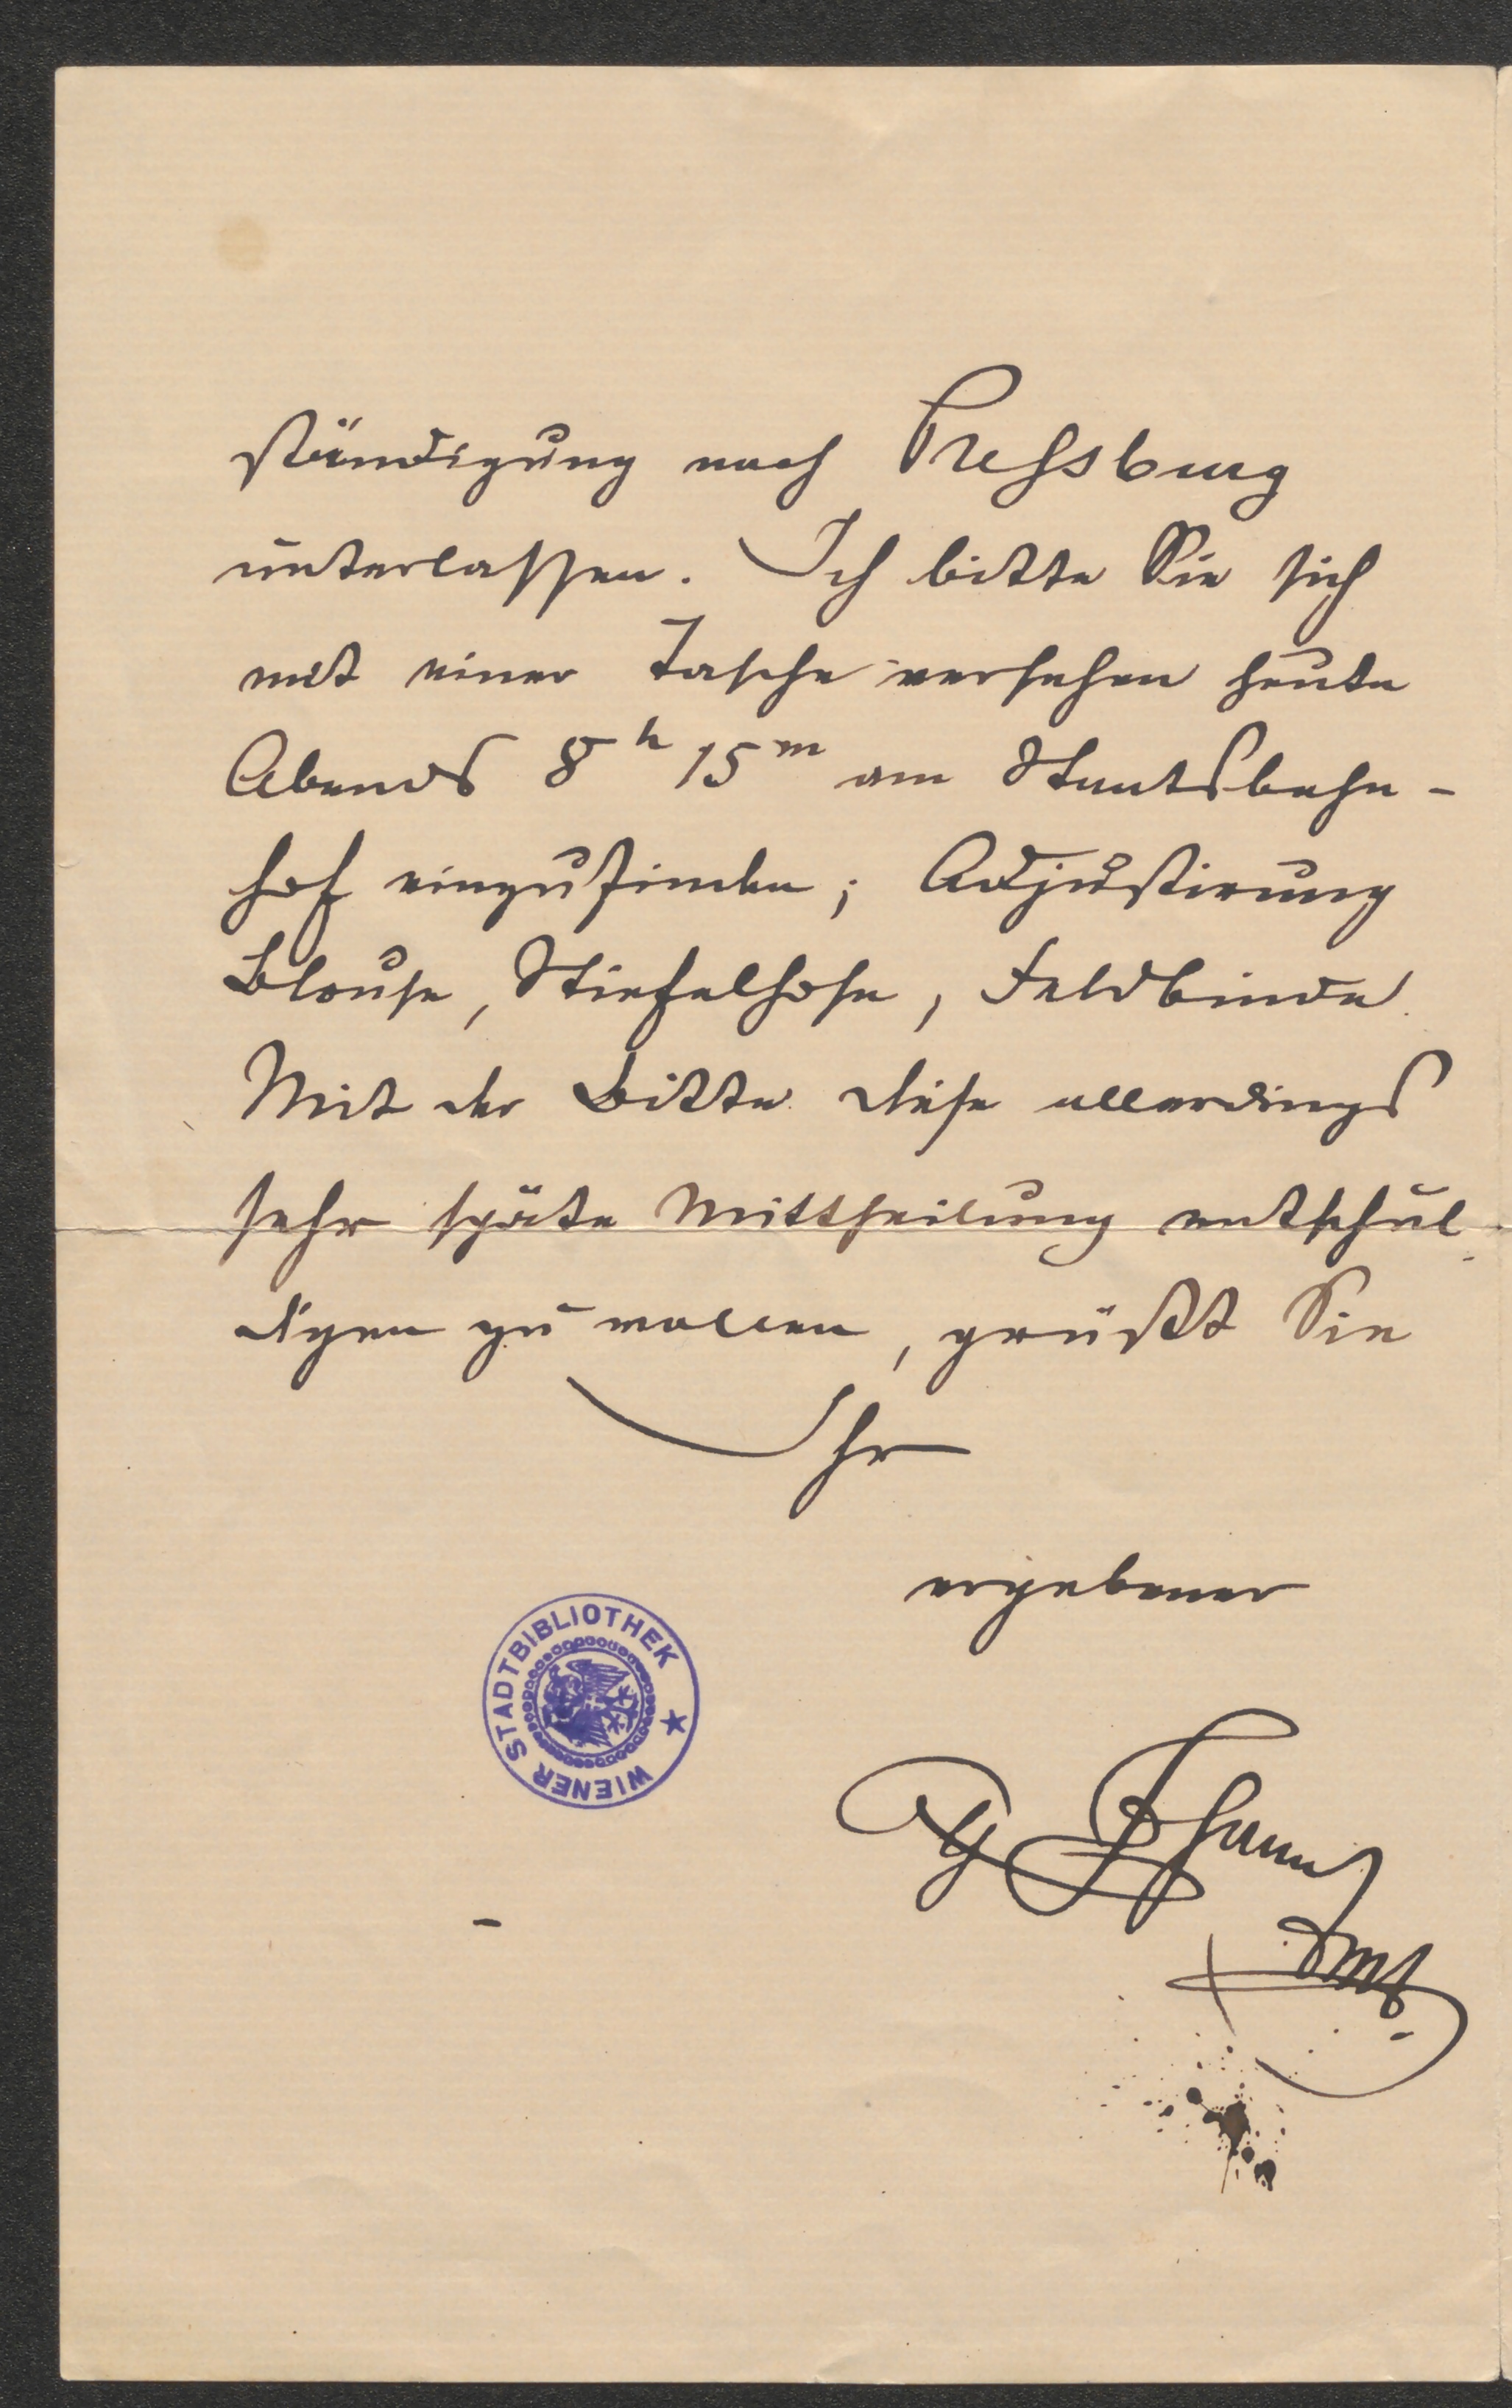 ständigung nach Pressburg
unterlassen. Ich bitte Sie sich
mit einer Tasche versehen heute
Abends 8h 15m am Staatsbahn-
hof einzufinden; Adjustirung
Blouse, Stiefelhose, Feldbinde.
Mit der Bitte diese allerdings
sehr späte Mittheilung entschul-
digen zu wollen, grüßt Sie
Ihr
ergebener
WIENER STADTBIBLIOTHEK